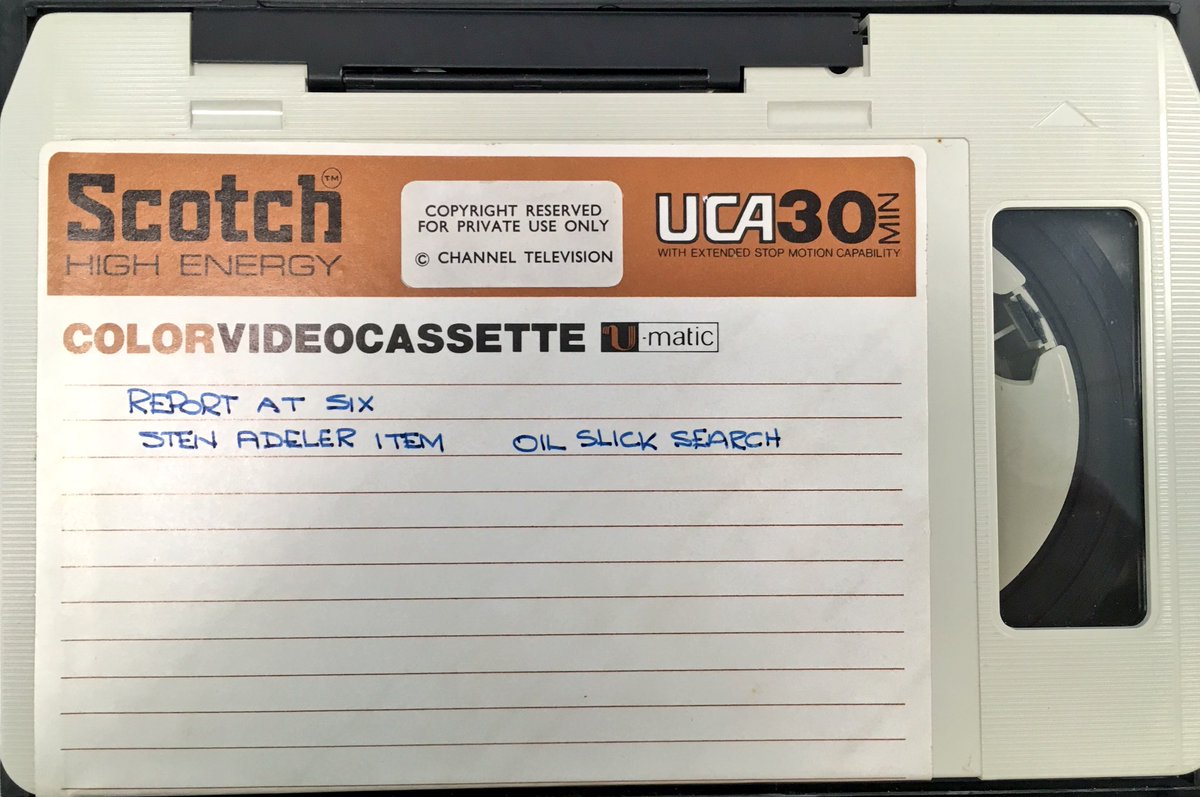 Scotch™
HIGH ENERGY
COPYRIGHT RESERVED
FOR PRIVATE USE ONLY
© CHANNEL TELEVISION
UCA30 MIN
WITH EXTENDED STOP MOTION CAPABILITY
COLORVIDEOCASSETTE U-matic
REPORT AT SIX
STEN ADELER ITEM OIL SLICK SEARCH